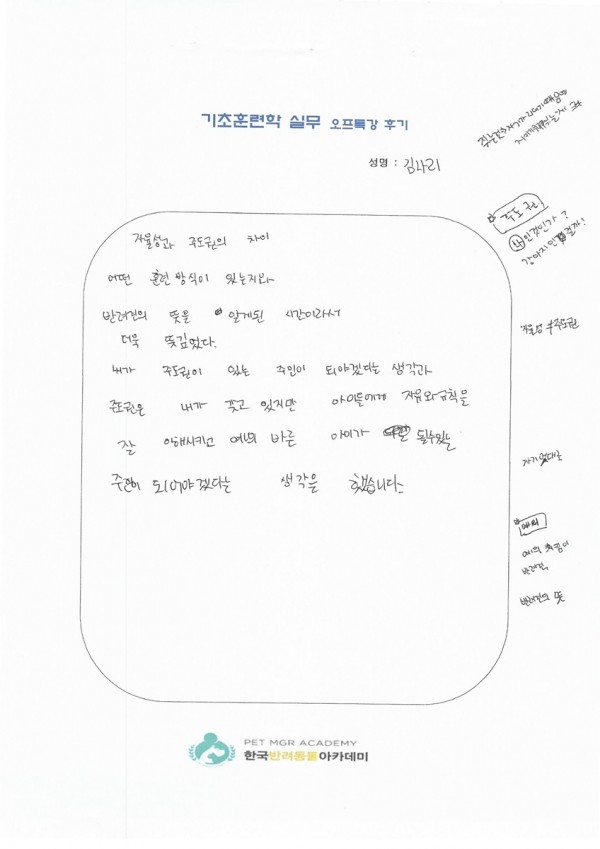 기초훈련학 실무 오프특강 후기
성명 : 김나리
자율성과 주도권의 차이
어떤 훈련 방식이 있는지와
반려견의 뜻을 알게된 시간이라서
더욱 뜻깊었다.
내가 주도권이 있는 주인이 되야겠다는 생각과
주도권은 내가 꽂고 있지만 아이들에게 자유와 규칙을
잘 이해시키고 예의 바른 아이가 될수있는
주인이 되어야겠다는 생각을 했습니다
주도권
인것인가?
강아지인
자율성 ≠ 주도권
자기멋대로
예의
예의
반려견
반려견의 뜻
PET MGR ACADEMY
한국반려동물아카데미